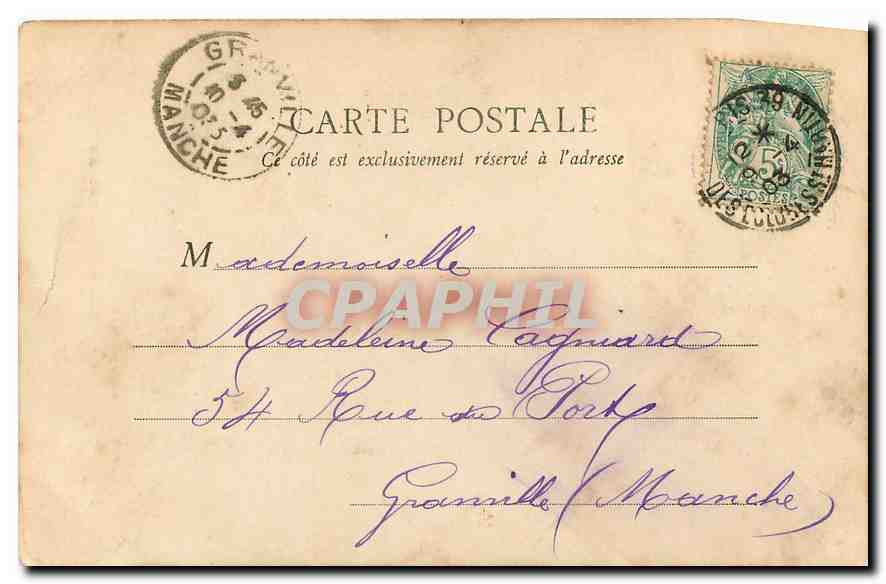 GRANVILLE
3 45
10 -4
03
MANCHE
CARTE POSTALE
Ce côté est exclusivement réservé à l'adresse
5
POSTES
PARIS 39
12
9 -4
03
DES ECLUSES
Mademoiselle
CPAPHIL
Madeleine Cagniard
54 Rue du Port
Granville (Manche)